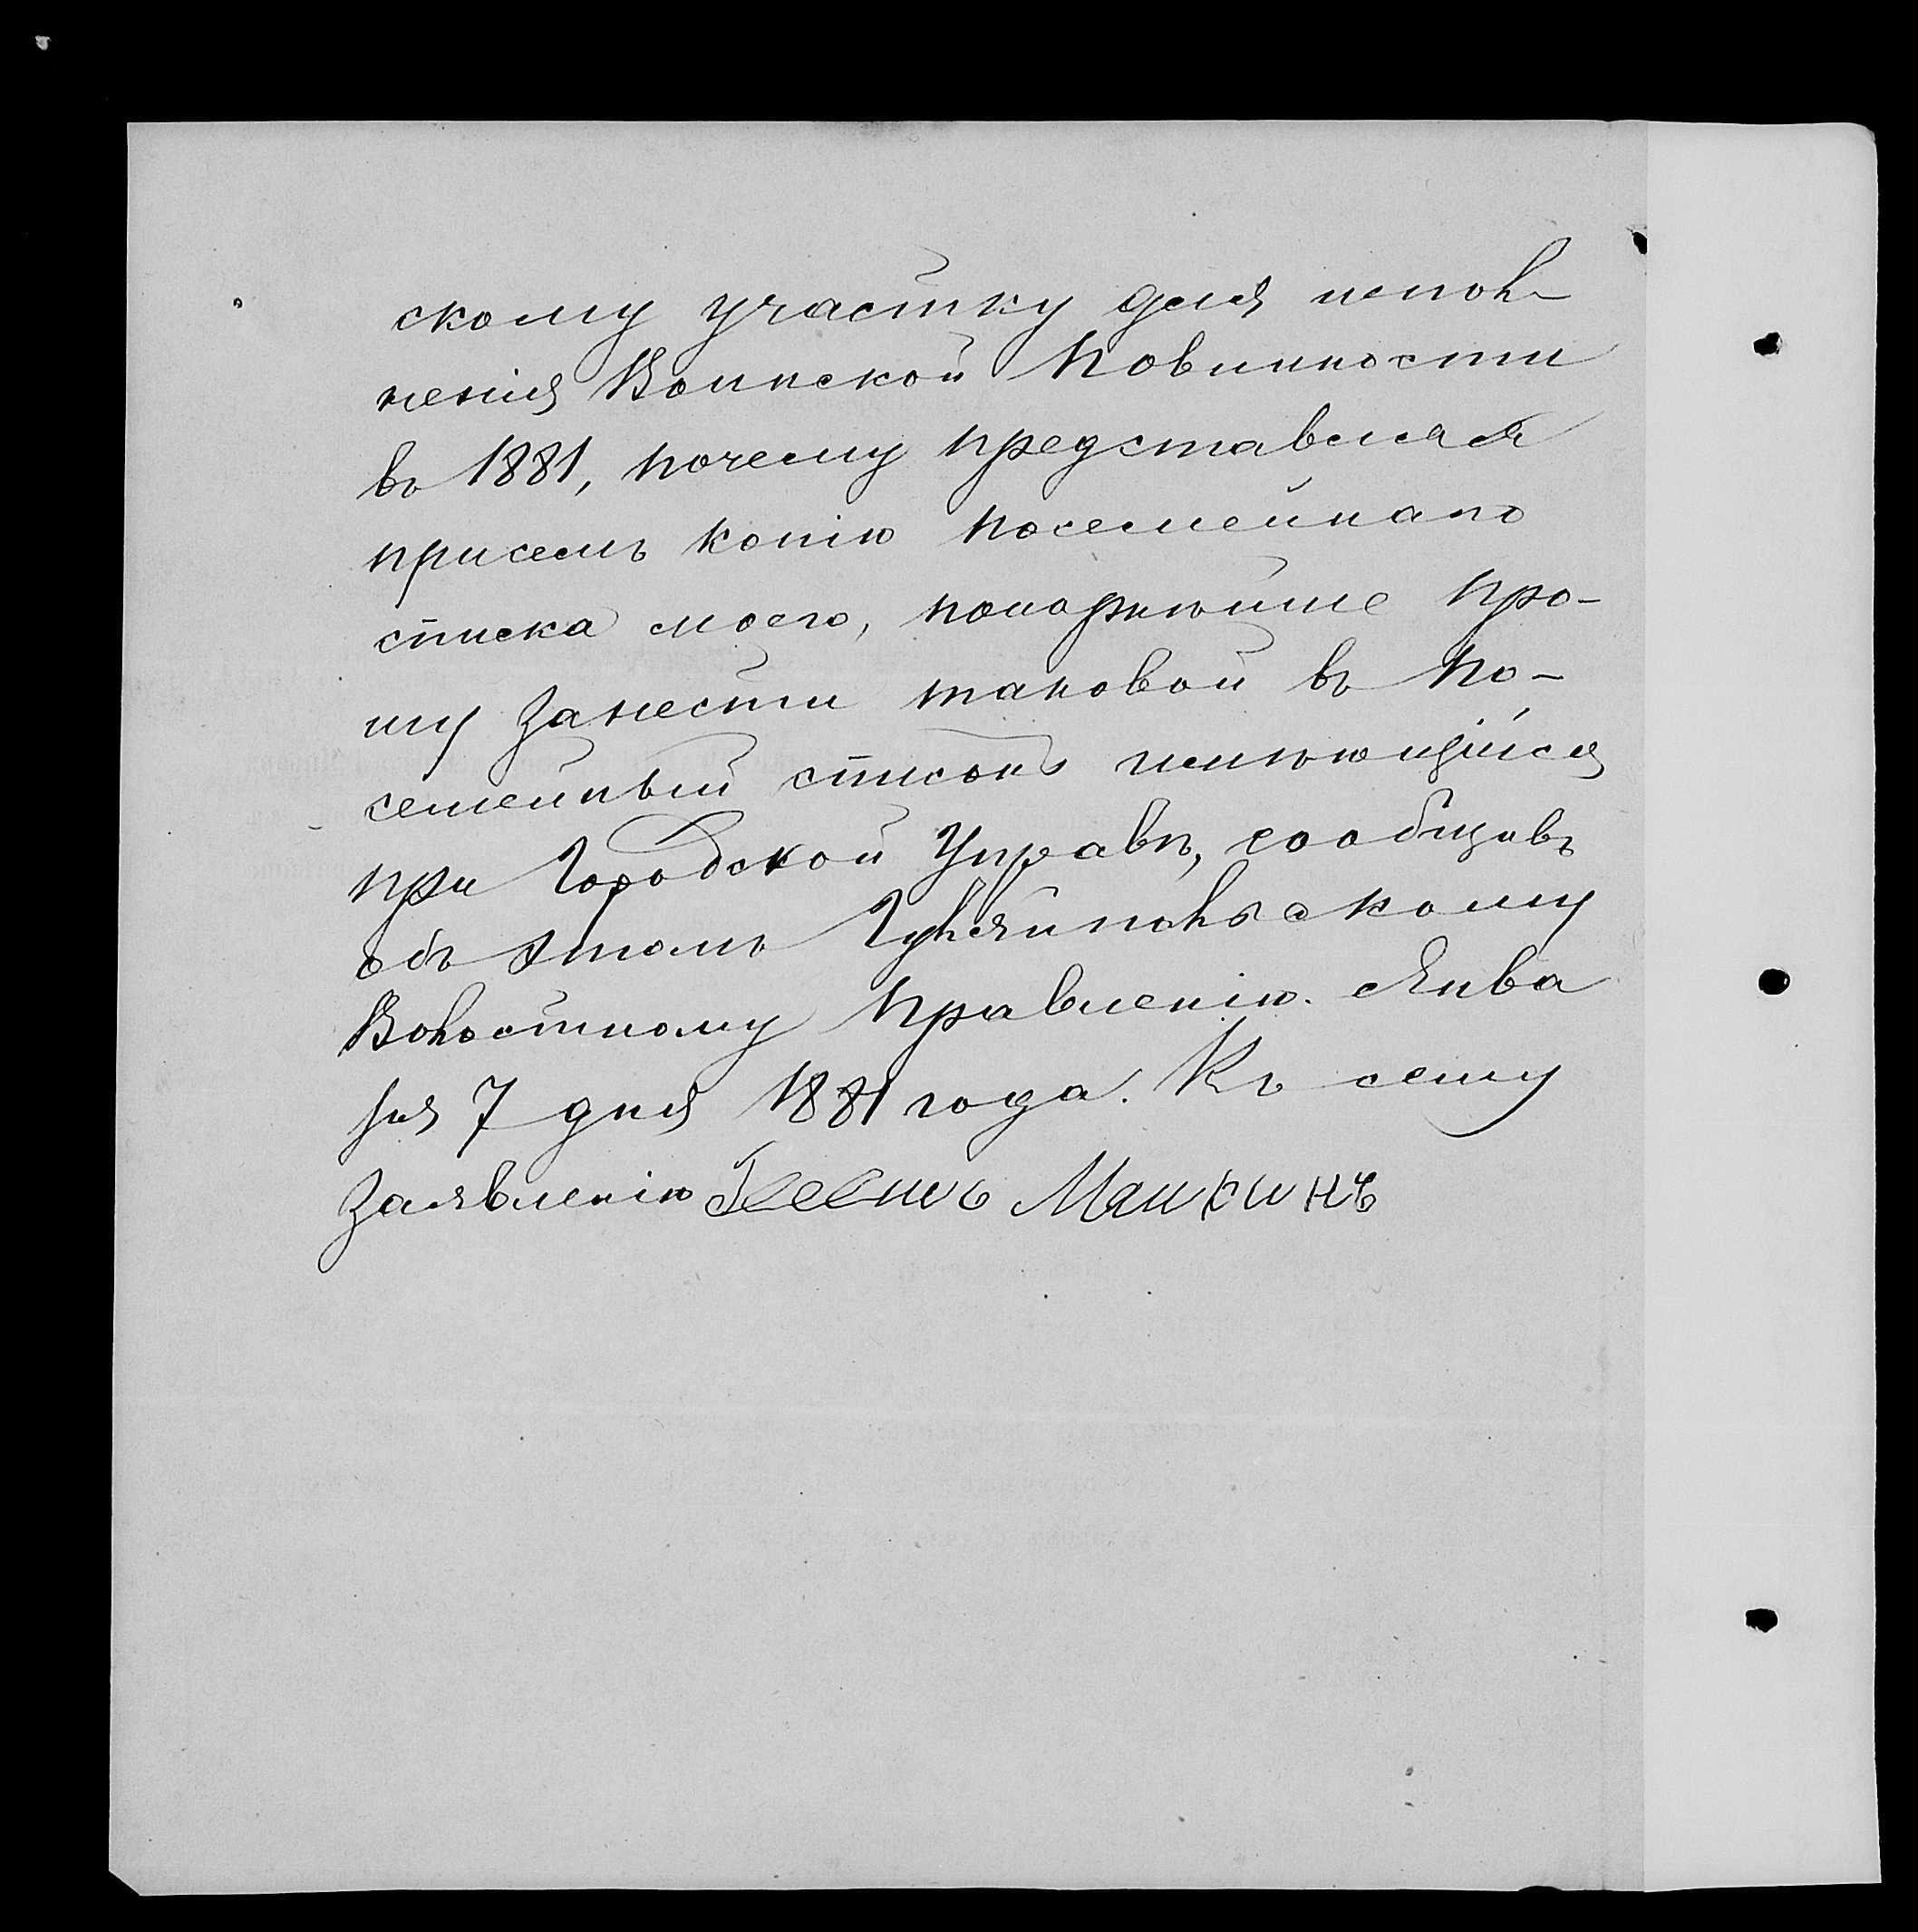 скому участку для испол-
ненія Воинской Повинности
въ 1881, почему представляя
присемъ копію посемейнаго
списка моего, покорнѣйше про-
шу занести таковой въ по-
семейный списокъ имѣющійся
при Городской Управѣ, сообщивъ
объ этомъ Гуляйпольскому
Волостному Правленію. Янва
ря 7 дня 1881 года. Къ сему
заявленію